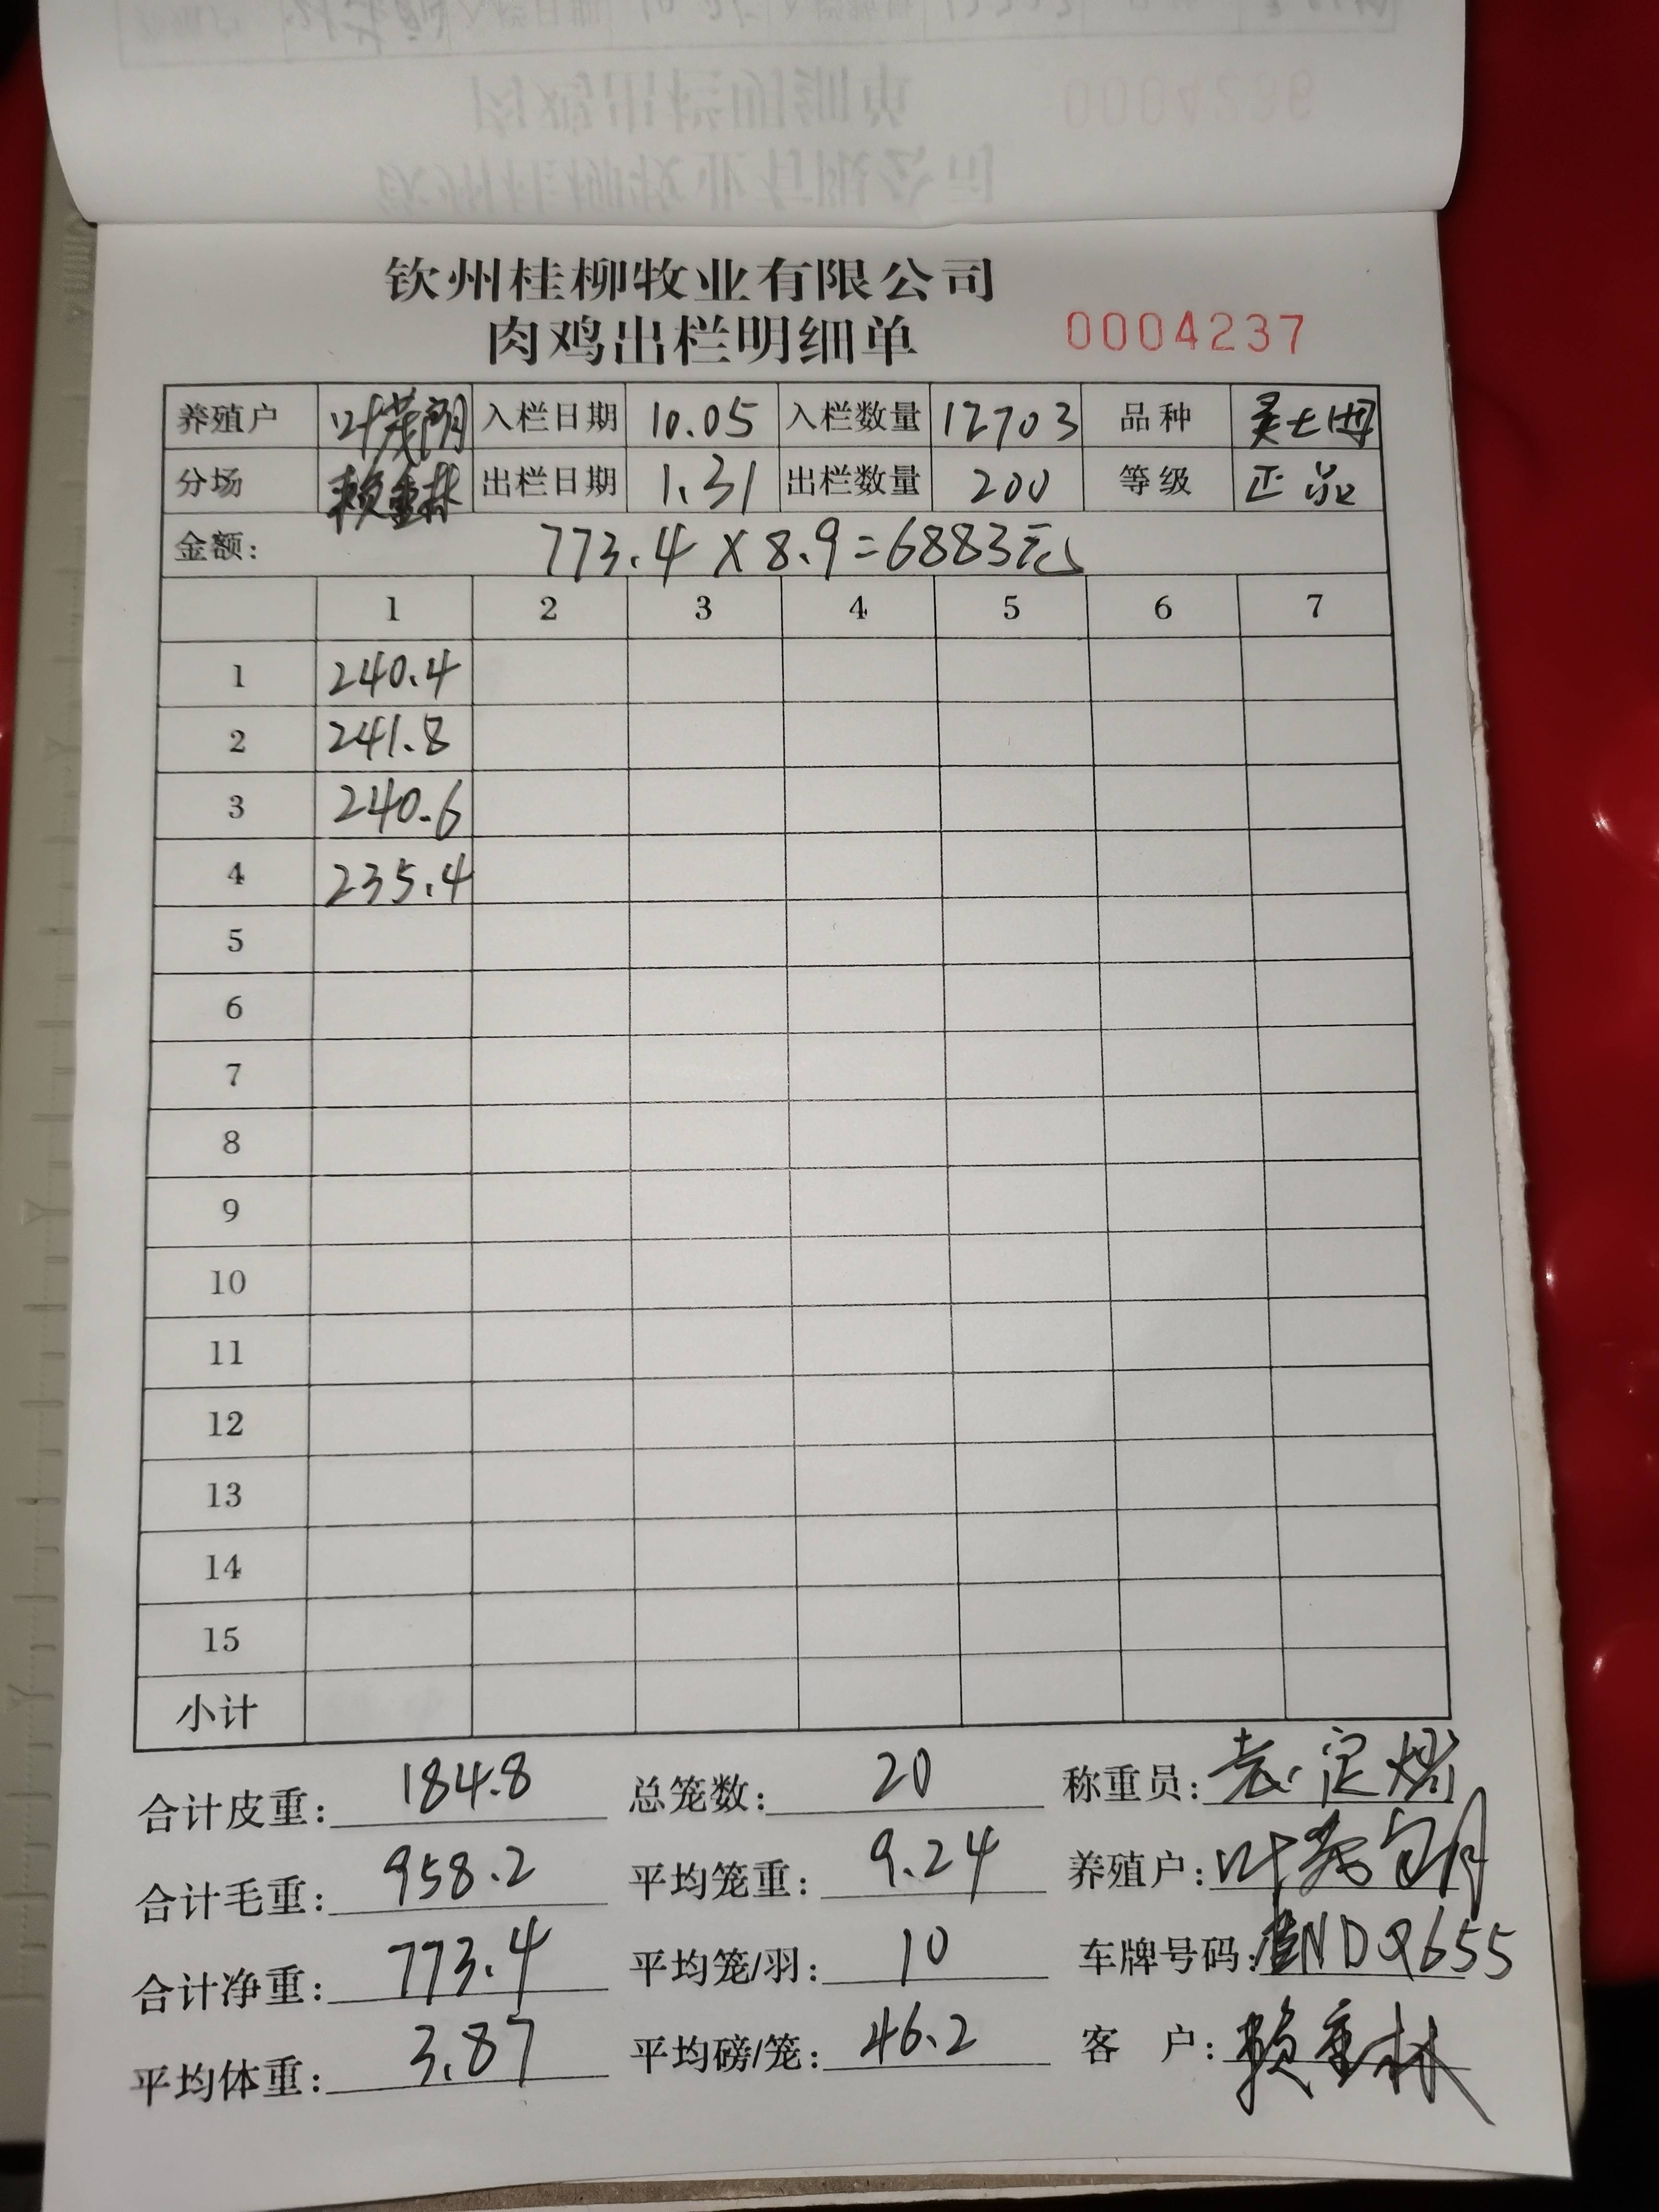 钦州桂柳牧业有限公司
肉鸡出栏明细单 0004237
养殖户 叶茂朗 入栏日期 10.05 入栏数量 12703 品种
分场 赖重林 出栏日期 1.31 出栏数量 200 等级 正品
金额: 773.4×8.9=6883元
1 2 3 4 5 6 7
1 240.4
2 241.8
3 240.6
4 235.4
5
6
7
8
9
10
11
12
13
14
15
小计
合计皮重: 184.8 总笼数: 20 称重员: 袁定
合计毛重: 958.2 平均笼重: 9.24 养殖户: 叶茂朗
合计净重: 773.4 平均笼/羽: 10 车牌号码: 桂NDQ655
平均体重: 3.87 平均磅/笼: 46.2 客 户: 赖重林